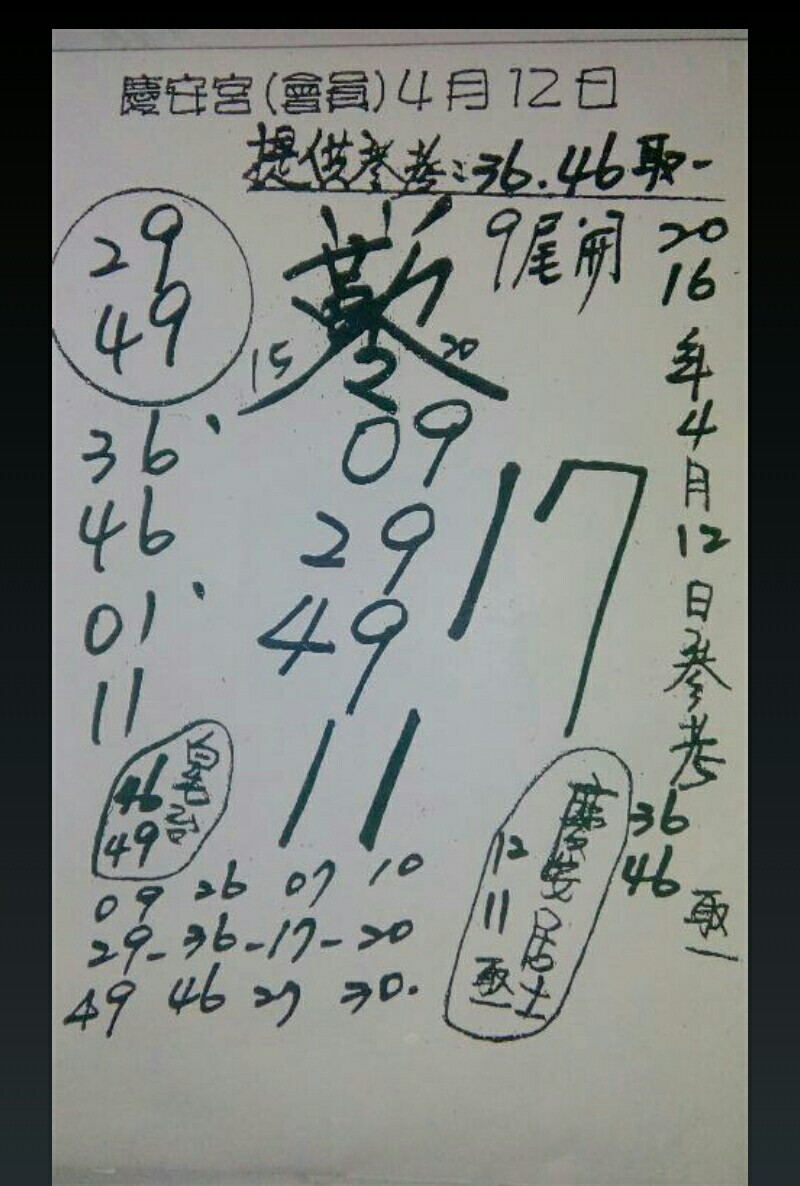 慶安宮(會員)4月12日
提供參考:36.46取一
29
49
9尾開
15 20
2
36、
46
01、
11
09
29
49
17
11
2016年4月12日參考
36
46
取一
46
49
慶安居士
12
11
取一
09 26 07 10
29-36-17-20
49 46 27 30.